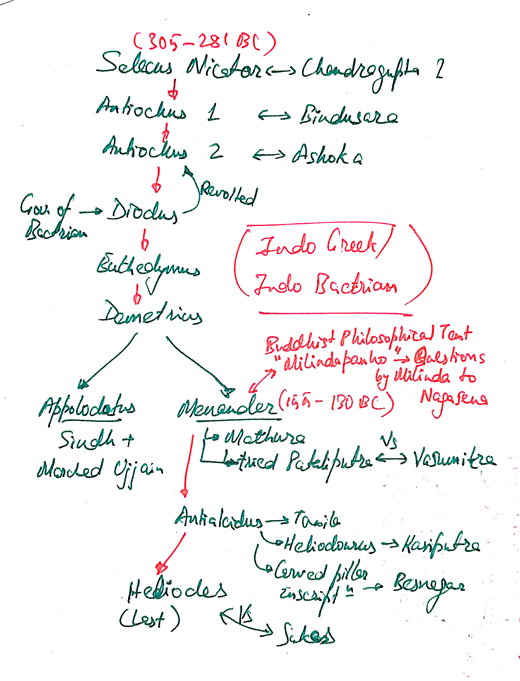 (305-281 BC)
Selecus Nicator ↔ Chandragupta 2
Antiochus 1 ↔ Bindusara
Antiochus 2 ↔ Ashoka
Revolted
Gov. of Bactrian → Diodus
Euthedymus
Demetrius
(Indo Greek/
Indo Bactrian)
Buddhist Philosophical Text
"Milindapanho" → Questions
by Milinda to
Nagasena
Appolodatus
Sindh +
Marched Ujjain
Menander (155-130 BC)
→ Mathura
→ tried Pataliputra ↔ Vs Vasumitra
Antialcidus → Taxila
→ Heliodourus → Kasiputra
→ Carved piller
inscript" → Besnagar
Heliodes
(Last)
Vs
Sakas